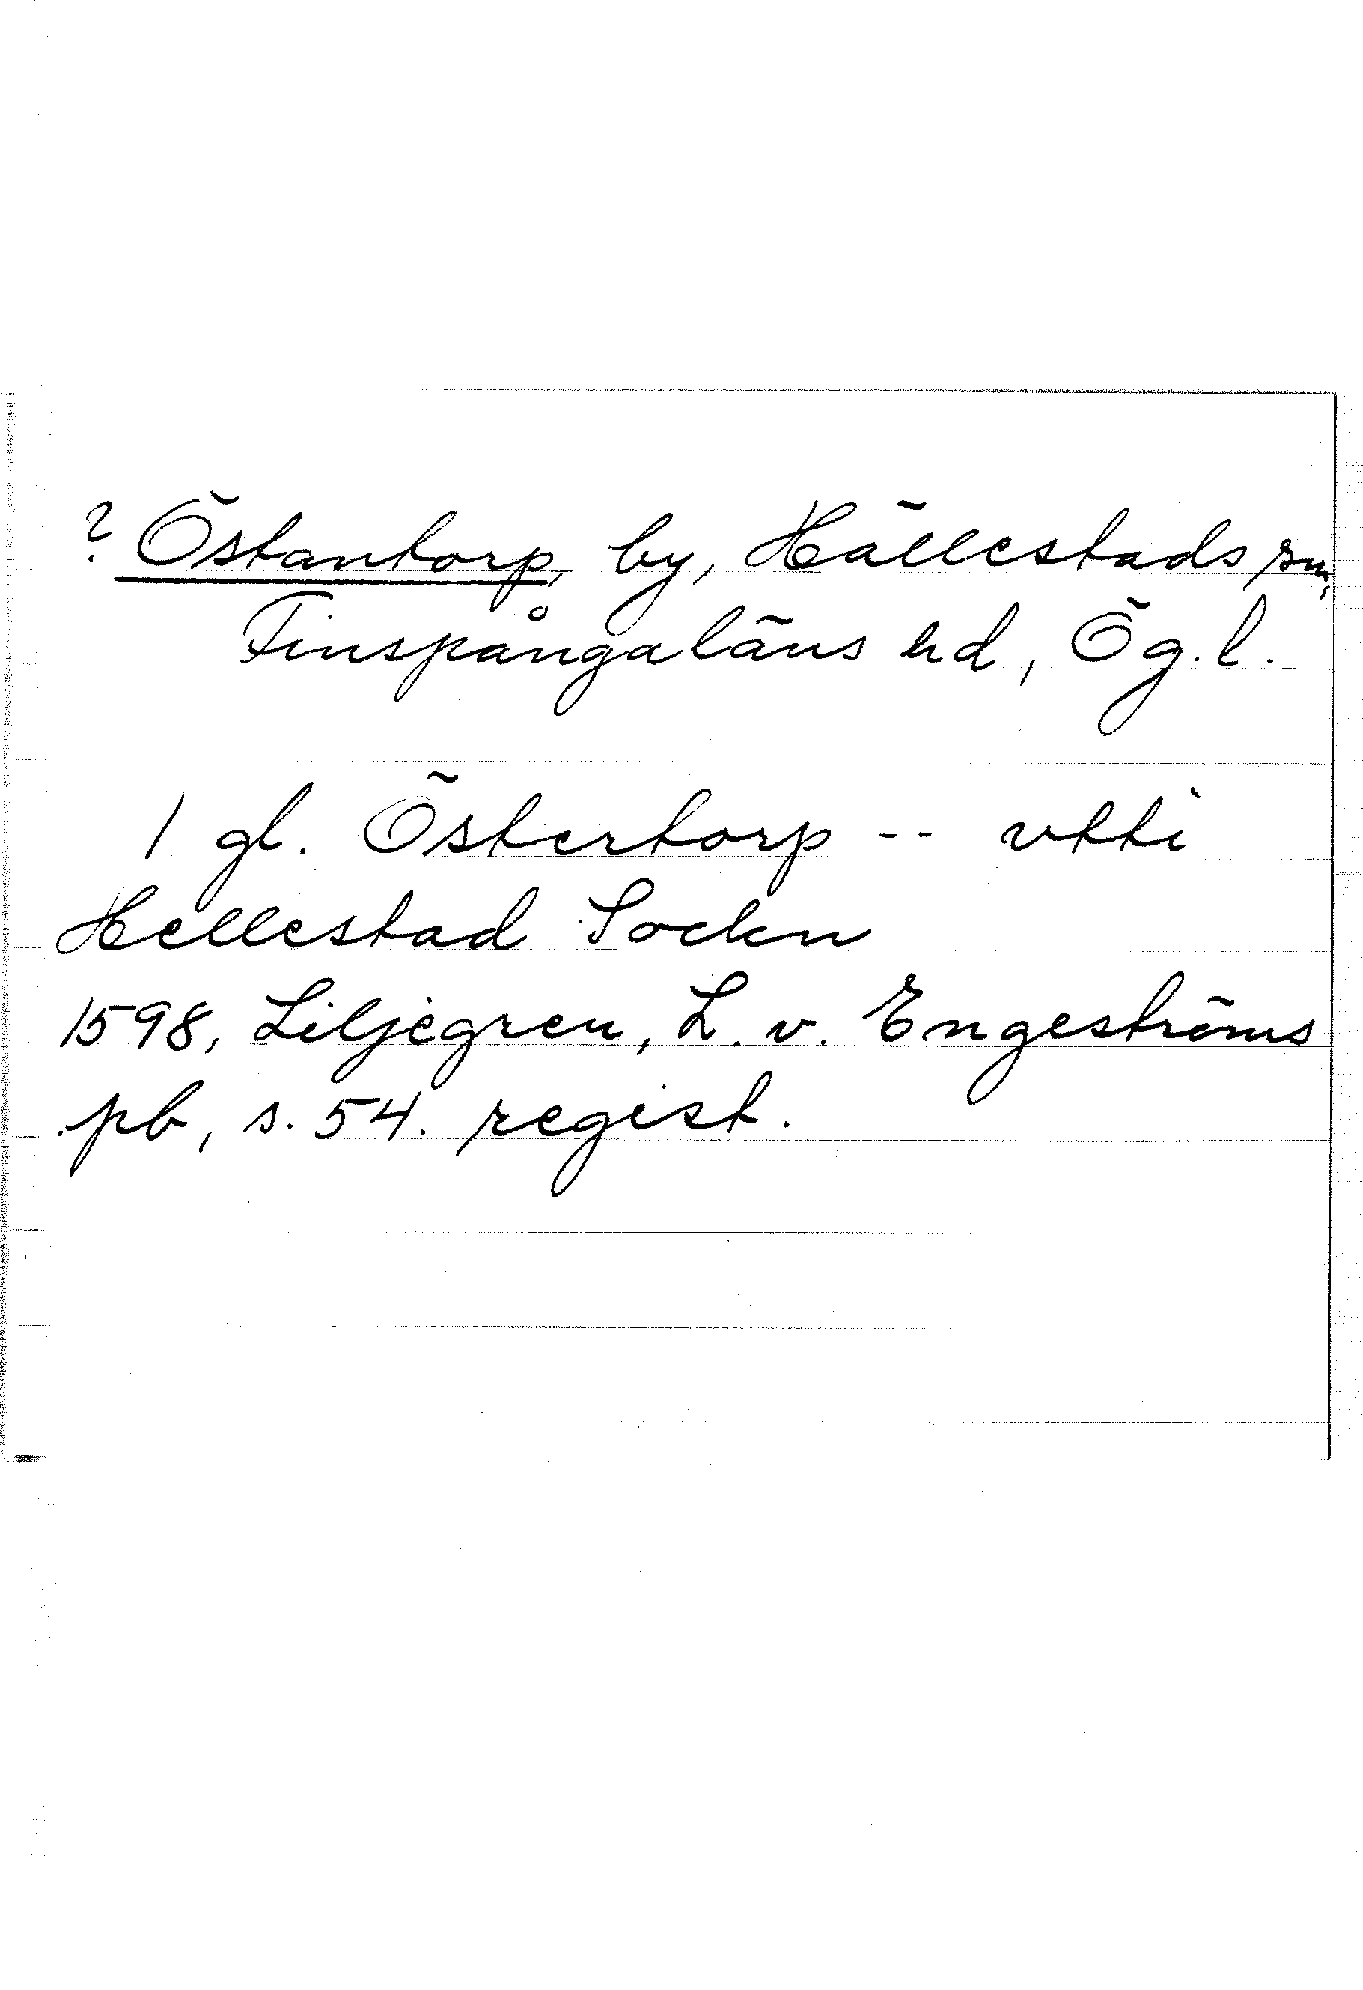 ? Östantorp, by, Hällestads sn,
Finspångaläns hd, Ög. l.
1 gl. Östertorp -- vtti
Hellestad Sockn
1598, Liljegren, L. v. Engeströms
pb, s. 54. regist.